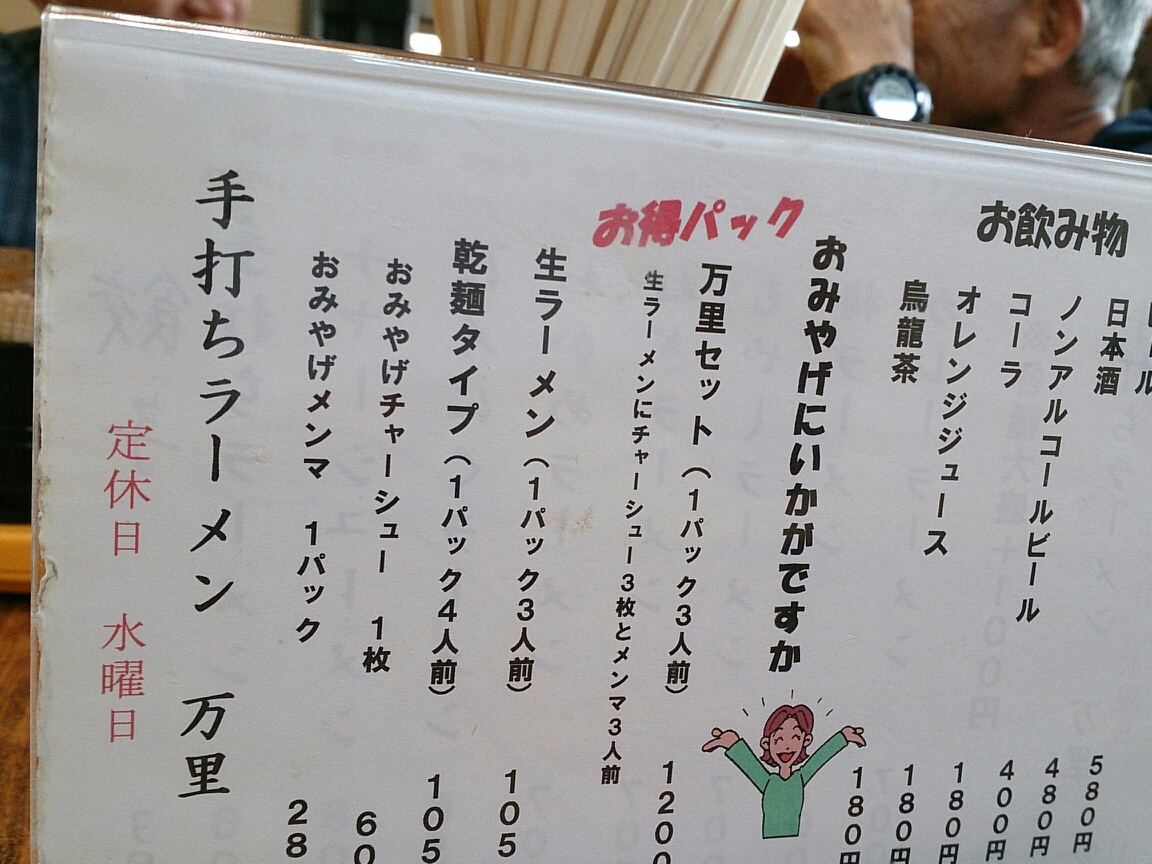 お飲み物
ール 580円
日本酒 480円
ノンアルコールビール 400円
コーラ 180円
オレンジジュース 180円
烏龍茶 180円
おみやげにいかがですか
お得パック
万里セット（1パック3人前） 1200
生ラーメンにチャーシュー3枚とメンマ3人前
生ラーメン（1パック3人前） 105
乾麺タイプ（1パック4人前） 105
おみやげチャーシュー 1枚 60
おみやげメンマ 1パック 28
手打ちラーメン 万里
定休日 水曜日